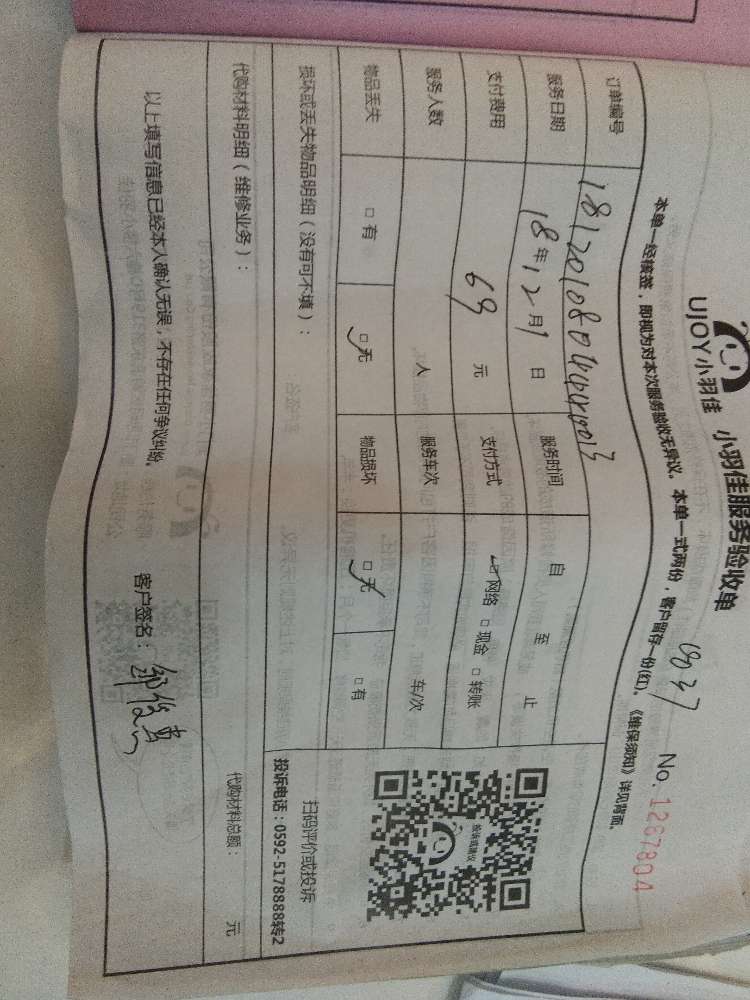 UJOY小羽佳 小羽佳服务验收单
No. 1267804
本单一经接签，即视为对本次服务验收无异议。本单一式两份，客户留存一份(红)。《维保须知》详见背面。
订单编号
服务日期 18年12月1日 服务时间 自 至 止
支付费用 69 元 支付方式 ☑网络 □现金 □转账
服务人数 人 服务车次 车/次
物品丢失 □有 ☑无 物品损坏 ☑无 □有
扫码评价或投诉
损坏或丢失物品明细（没有可不填）：
投诉电话：0592-5178888转2
代购材料明细（维修业务）：
代购材料总额： 元
以上填写信息已经本人确认无误，不存在任何争议纠纷。
客户签名：